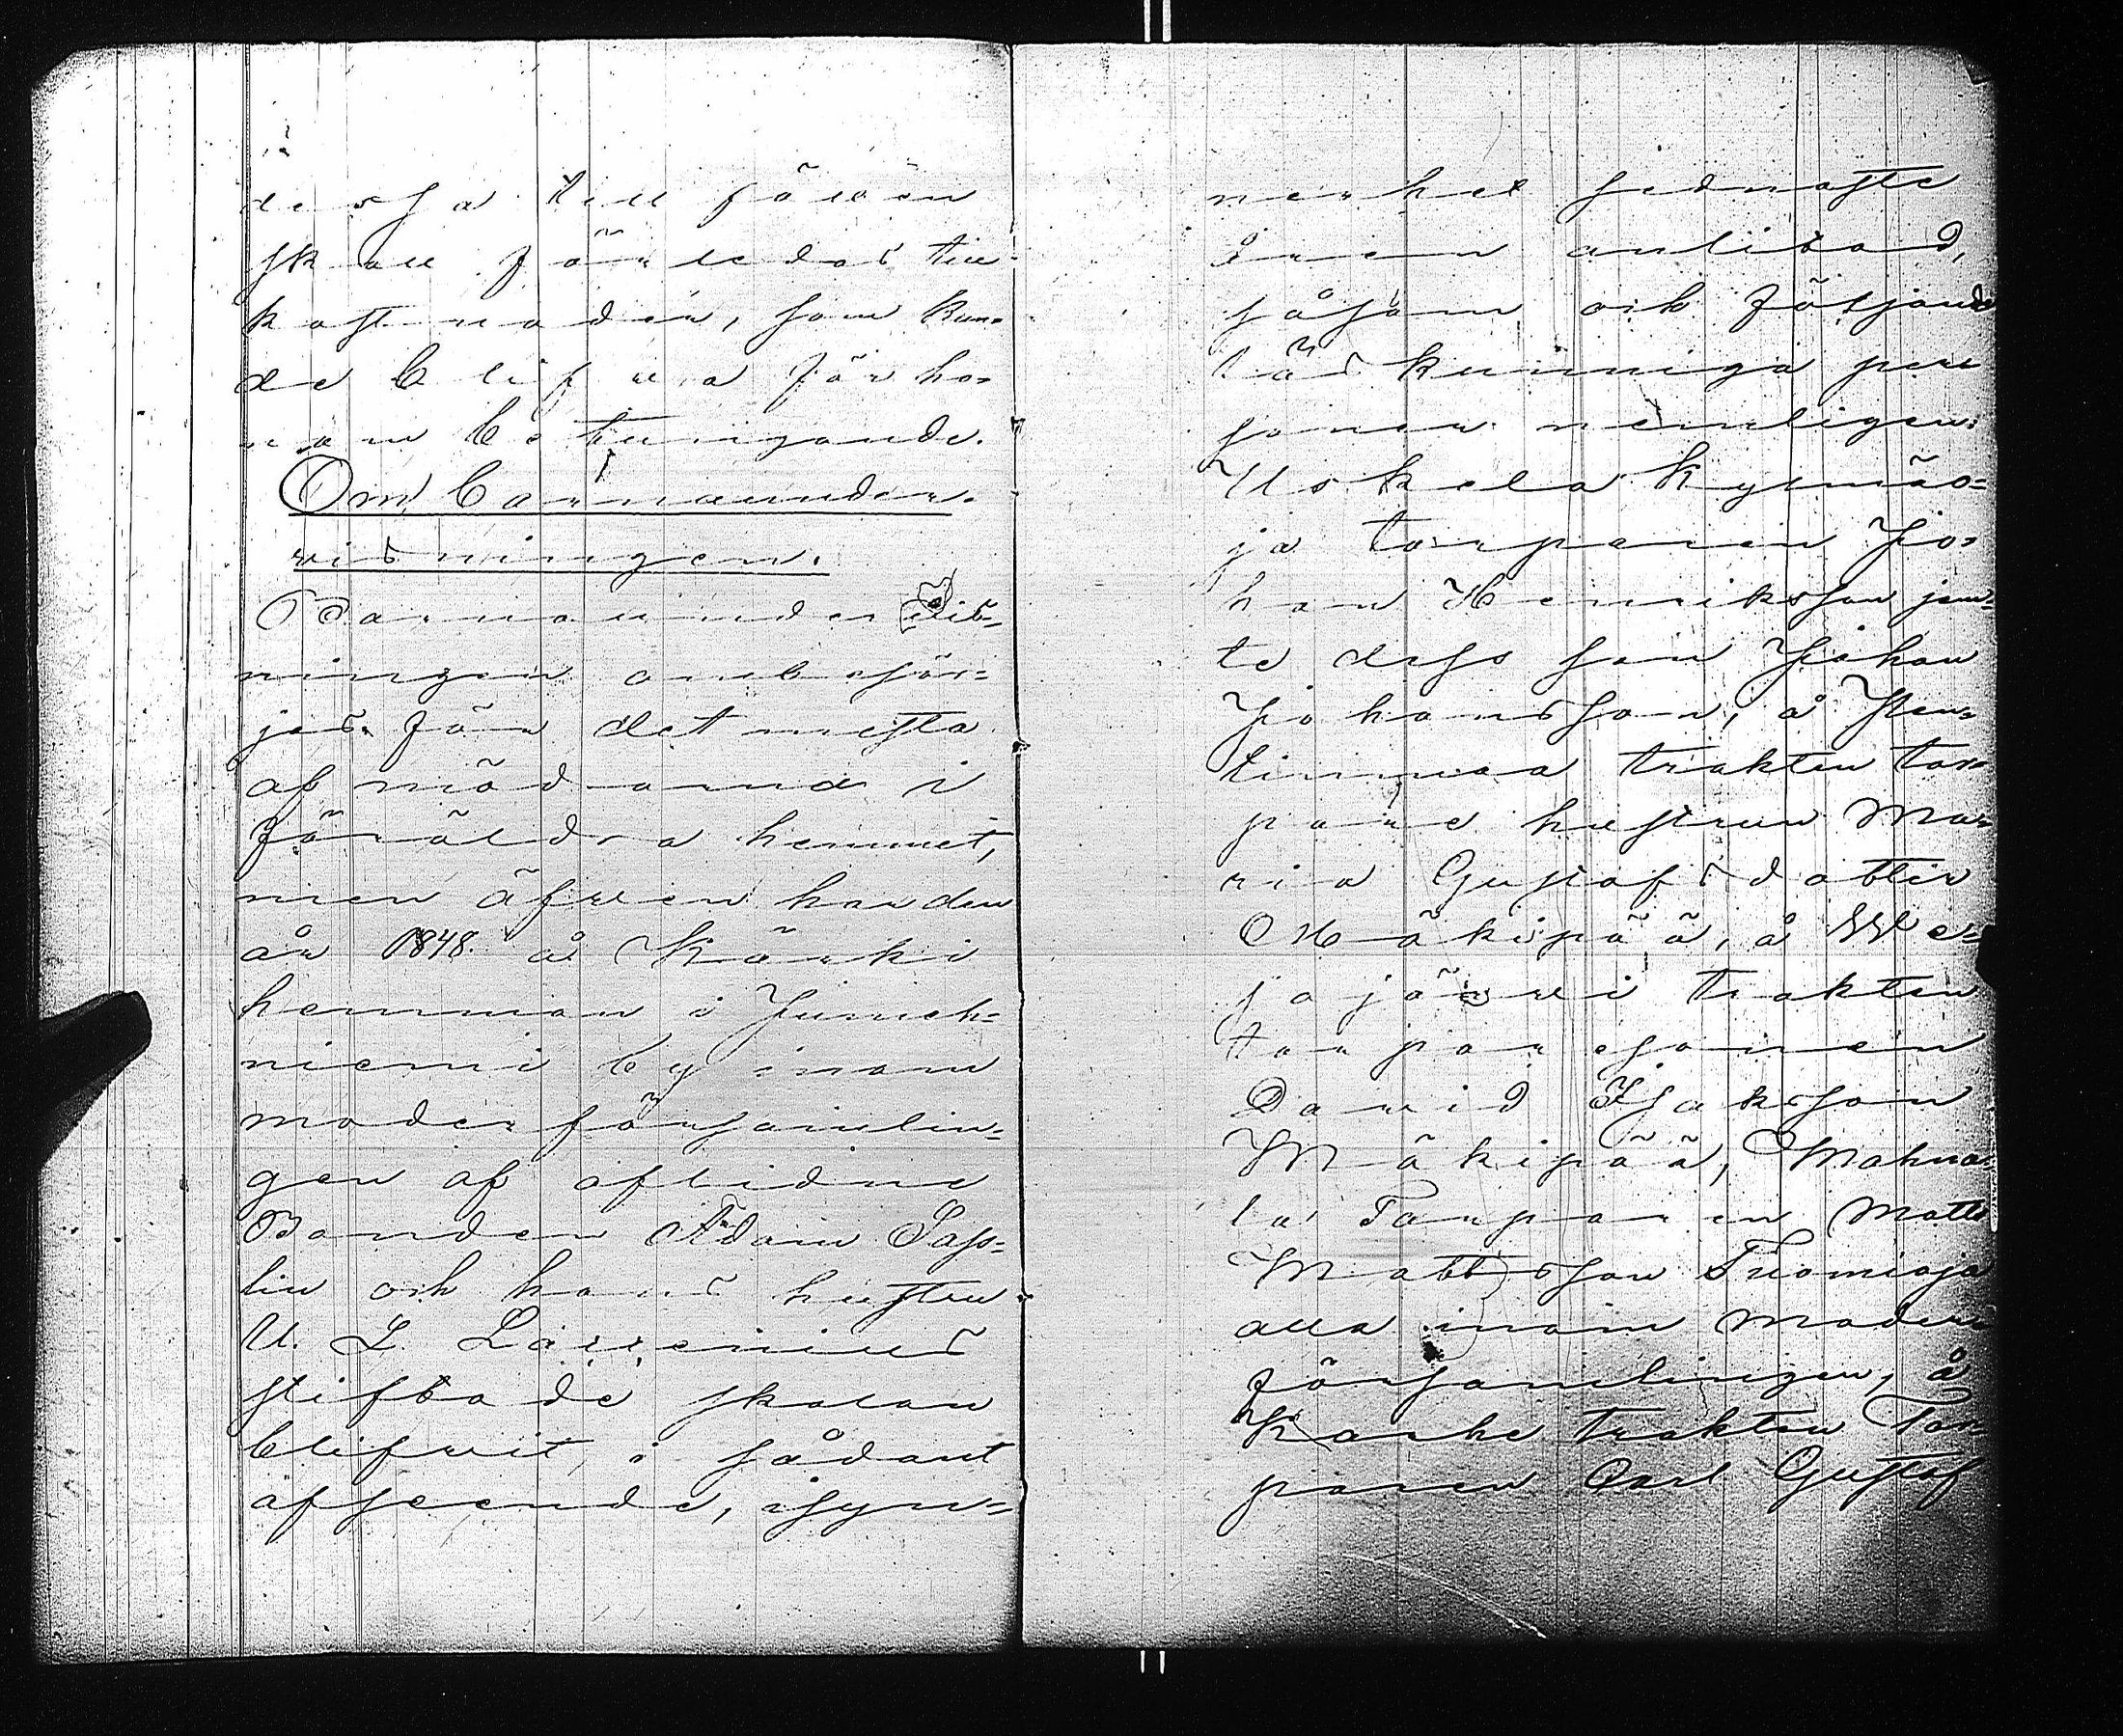 dessa till följe
skall förledas till
kostnaden, som kun-
de blifva för ho-
nom betungande.
Om barnaunder-
visningen.
Barnaundervis-
ningen ombesör-
jes för det mesta
af mödrarna i
föräldra hemmet,
men äfven har den
år 1848 å Kärki
hemman i Jumeh-
niemi by inom
moderförsamlin-
gen af aflidne
Bonden Adam Sass-
lin och hans hustru
U. L. Lagenius
stiftade skolan
blifvit i sådant
afseende, isyn-
nerhet sednaste
åren anlitad,
såsom och följande
läskunniga per
soner nemligen:
Uskela Kylmäo-
ja torparen Jo-
han Henriksson jem-
te dess son Johan
Johansson, å Sten-
tinmaa trakten tor-
pare hustrun Ma-
ria Gustafsdotter
Mäkipää, å We-
sajärvi trakten
torparesonen
David Isaksson
Mäkipää, Mahna-
la Torparen Matts
Mattsson Tuomioja
alla inom moder
församlingen, å
Karhe trakten Tor-
paren Carl Gustaf